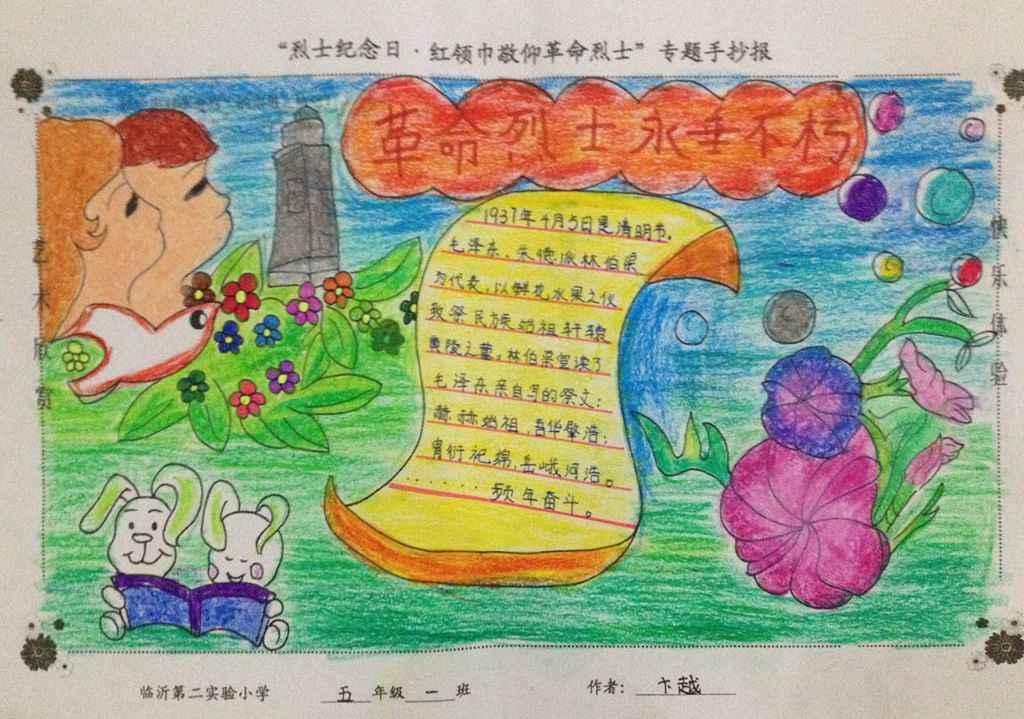 “烈士纪念日·红领巾敬仰革命烈士”专题手抄报
革命烈士永垂不朽
1937年4月5日是清明节。
毛泽东、朱德派林伯渠
为代表，以鲜花水果之仪
致祭民族始祖轩辕
黄陵之墓。林伯渠宣读了
毛泽东亲自写的祭文：
赫赫始祖，吾华肇浩；
胄衍祀绵，岳峨河浩。
........频年奋斗。
艺术欣赏
快乐体验
临沂第二实验小学 五年级一班 作者：卞越